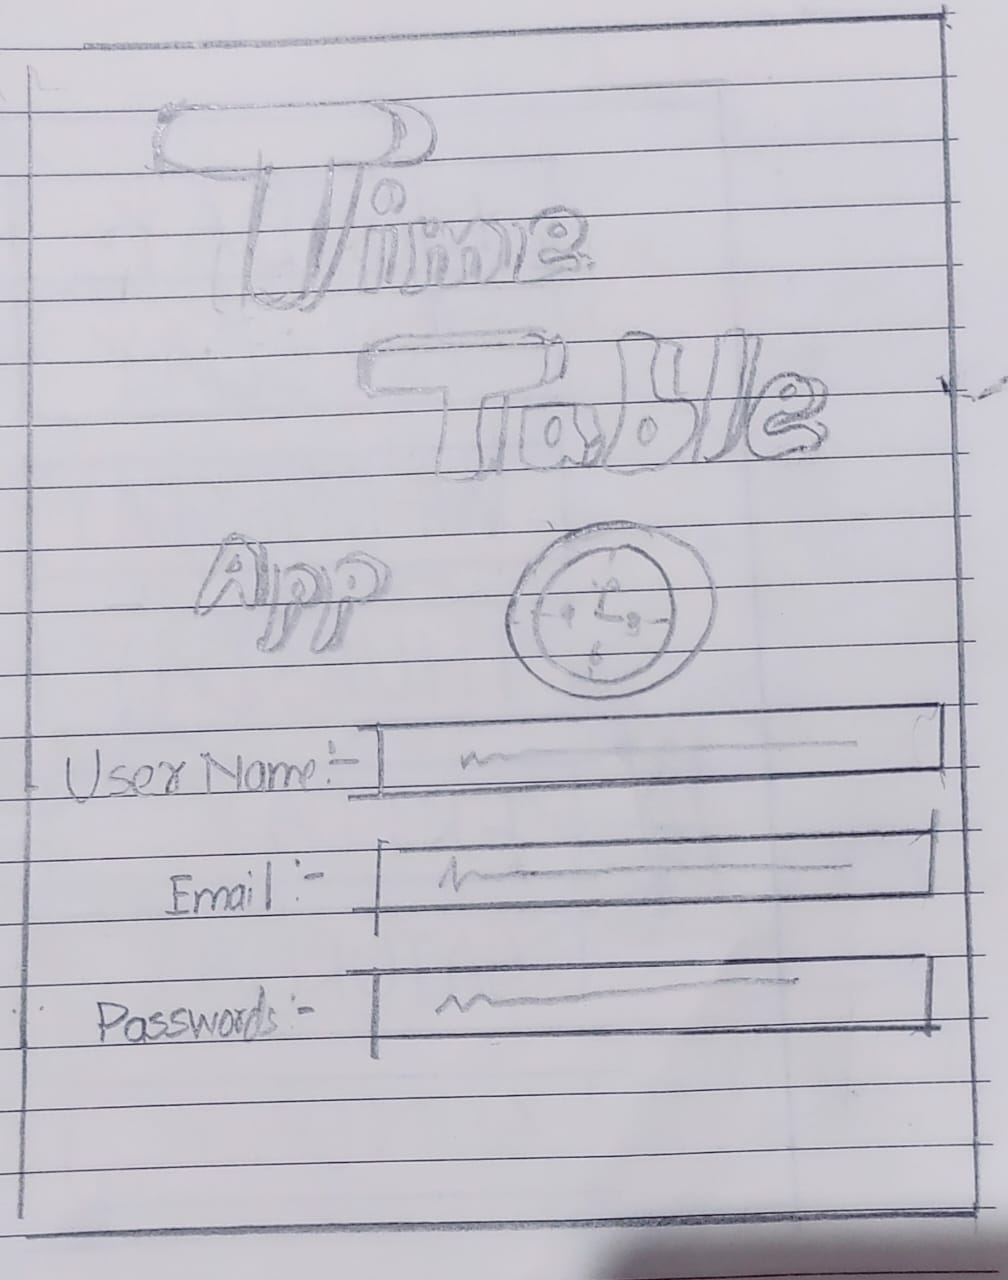 Time
Table
App
User Name:-
Email :-
Passwords :-